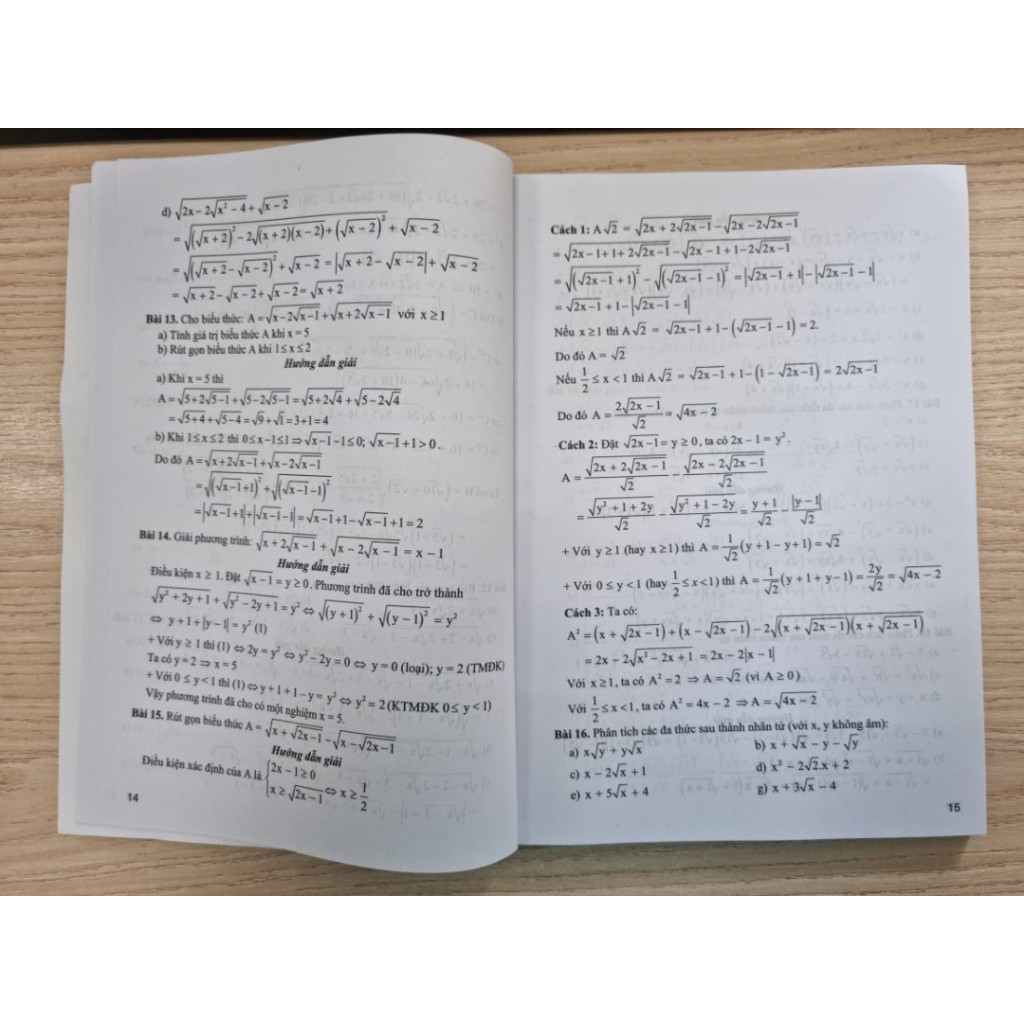 d) √(2x − 2√(x² − 4)) + √(x − 2)
= √((√(x + 2))² − 2√((x + 2)(x − 2)) + (√(x − 2))²) + √(x − 2)
= √((√(x + 2) − √(x − 2))²) + √(x − 2) = |√(x + 2) − √(x − 2)| + √(x − 2)
= √(x + 2) − √(x − 2) + √(x − 2) = √(x + 2)
Bài 13. Cho biểu thức: A = √(x − 2√(x − 1)) + √(x + 2√(x − 1)) với x ≥ 1
a) Tính giá trị biểu thức A khi x = 5
b) Rút gọn biểu thức A khi 1 ≤ x ≤ 2
Hướng dẫn giải
a) Khi x = 5 thì
A = √(5 + 2√(5 − 1)) + √(5 − 2√(5 − 1)) = √(5 + 2√4) + √(5 − 2√4)
= √(5 + 4) + √(5 − 4) = √9 + √1 = 3 + 1 = 4
b) Khi 1 ≤ x ≤ 2 thì 0 ≤ x − 1 ≤ 1 ⇒ √(x − 1) − 1 ≤ 0; √(x − 1) + 1 > 0.
Do đó A = √(x + 2√(x − 1)) + √(x − 2√(x − 1))
= √((√(x − 1) + 1)²) + √((√(x − 1) − 1)²)
= |√(x − 1) + 1| + |√(x − 1) − 1| = √(x − 1) + 1 − √(x − 1) + 1 = 2
Bài 14. Giải phương trình: √(x + 2√(x − 1)) + √(x − 2√(x − 1)) = x − 1
Hướng dẫn giải
Điều kiện x ≥ 1. Đặt √(x − 1) = y ≥ 0. Phương trình đã cho trở thành
√(y² + 2y + 1) + √(y² − 2y + 1) = y² ⇔ √((y + 1)²) + √((y − 1)²) = y²
⇔ y + 1 + |y − 1| = y² (1)
+ Với y ≥ 1 thì (1) ⇔ 2y = y² ⇔ y² − 2y = 0 ⇔ y = 0 (loại); y = 2 (TMĐK)
Ta có y = 2 ⇒ x = 5
+ Với 0 ≤ y < 1 thì (1) ⇔ y + 1 + 1 − y = y² ⇔ y² = 2 (KTMĐK 0 ≤ y < 1)
Vậy phương trình đã cho có một nghiệm x = 5.
Bài 15. Rút gọn biểu thức A = √(x + √(2x − 1)) − √(x − √(2x − 1))
Hướng dẫn giải
Điều kiện xác định của A là {2x − 1 ≥ 0; x ≥ √(2x − 1)} ⇔ x ≥ 1/2
14
Cách 1: A√2 = √(2x + 2√(2x − 1)) − √(2x − 2√(2x − 1))
= √(2x − 1 + 1 + 2√(2x − 1)) − √(2x − 1 + 1 − 2√(2x − 1))
= √((√(2x − 1) + 1)²) − √((√(2x − 1) − 1)²) = |√(2x − 1) + 1| − |√(2x − 1) − 1|
= √(2x − 1) + 1 − |√(2x − 1) − 1|
Nếu x ≥ 1 thì A√2 = √(2x − 1) + 1 − (√(2x − 1) − 1) = 2.
Do đó A = √2
Nếu 1/2 ≤ x < 1 thì A√2 = √(2x − 1) + 1 − (1 − √(2x − 1)) = 2√(2x − 1)
Do đó A = 2√(2x − 1)/√2 = √(4x − 2)
Cách 2: Đặt √(2x − 1) = y ≥ 0, ta có 2x − 1 = y².
A = √(2x + 2√(2x − 1))/√2 − √(2x − 2√(2x − 1))/√2
= √(y² + 1 + 2y)/√2 − √(y² + 1 − 2y)/√2 = (y + 1)/√2 − |y − 1|/√2
+ Với y ≥ 1 (hay x ≥ 1) thì A = 1/√2 (y + 1 − y + 1) = √2
+ Với 0 ≤ y < 1 (hay 1/2 ≤ x < 1) thì A = 1/√2 (y + 1 + y − 1) = 2y/√2 = √(4x − 2)
Cách 3: Ta có:
A² = (x + √(2x − 1)) + (x − √(2x − 1)) − 2√((x + √(2x − 1))(x + √(2x − 1)))
= 2x − 2√(x² − 2x + 1) = 2x − 2|x − 1|
Với x ≥ 1, ta có A² = 2 ⇒ A = √2 (vì A ≥ 0)
Với 1/2 ≤ x < 1, ta có A² = 4x − 2 ⇒ A = √(4x − 2)
Bài 16. Phân tích các đa thức sau thành nhân tử (với x, y không âm):
a) x√y + y√x b) x + √x − y − √y
c) x − 2√x + 1 d) x² − 2√2.x + 2
e) x + 5√x + 4 g) x + 3√x − 4
15